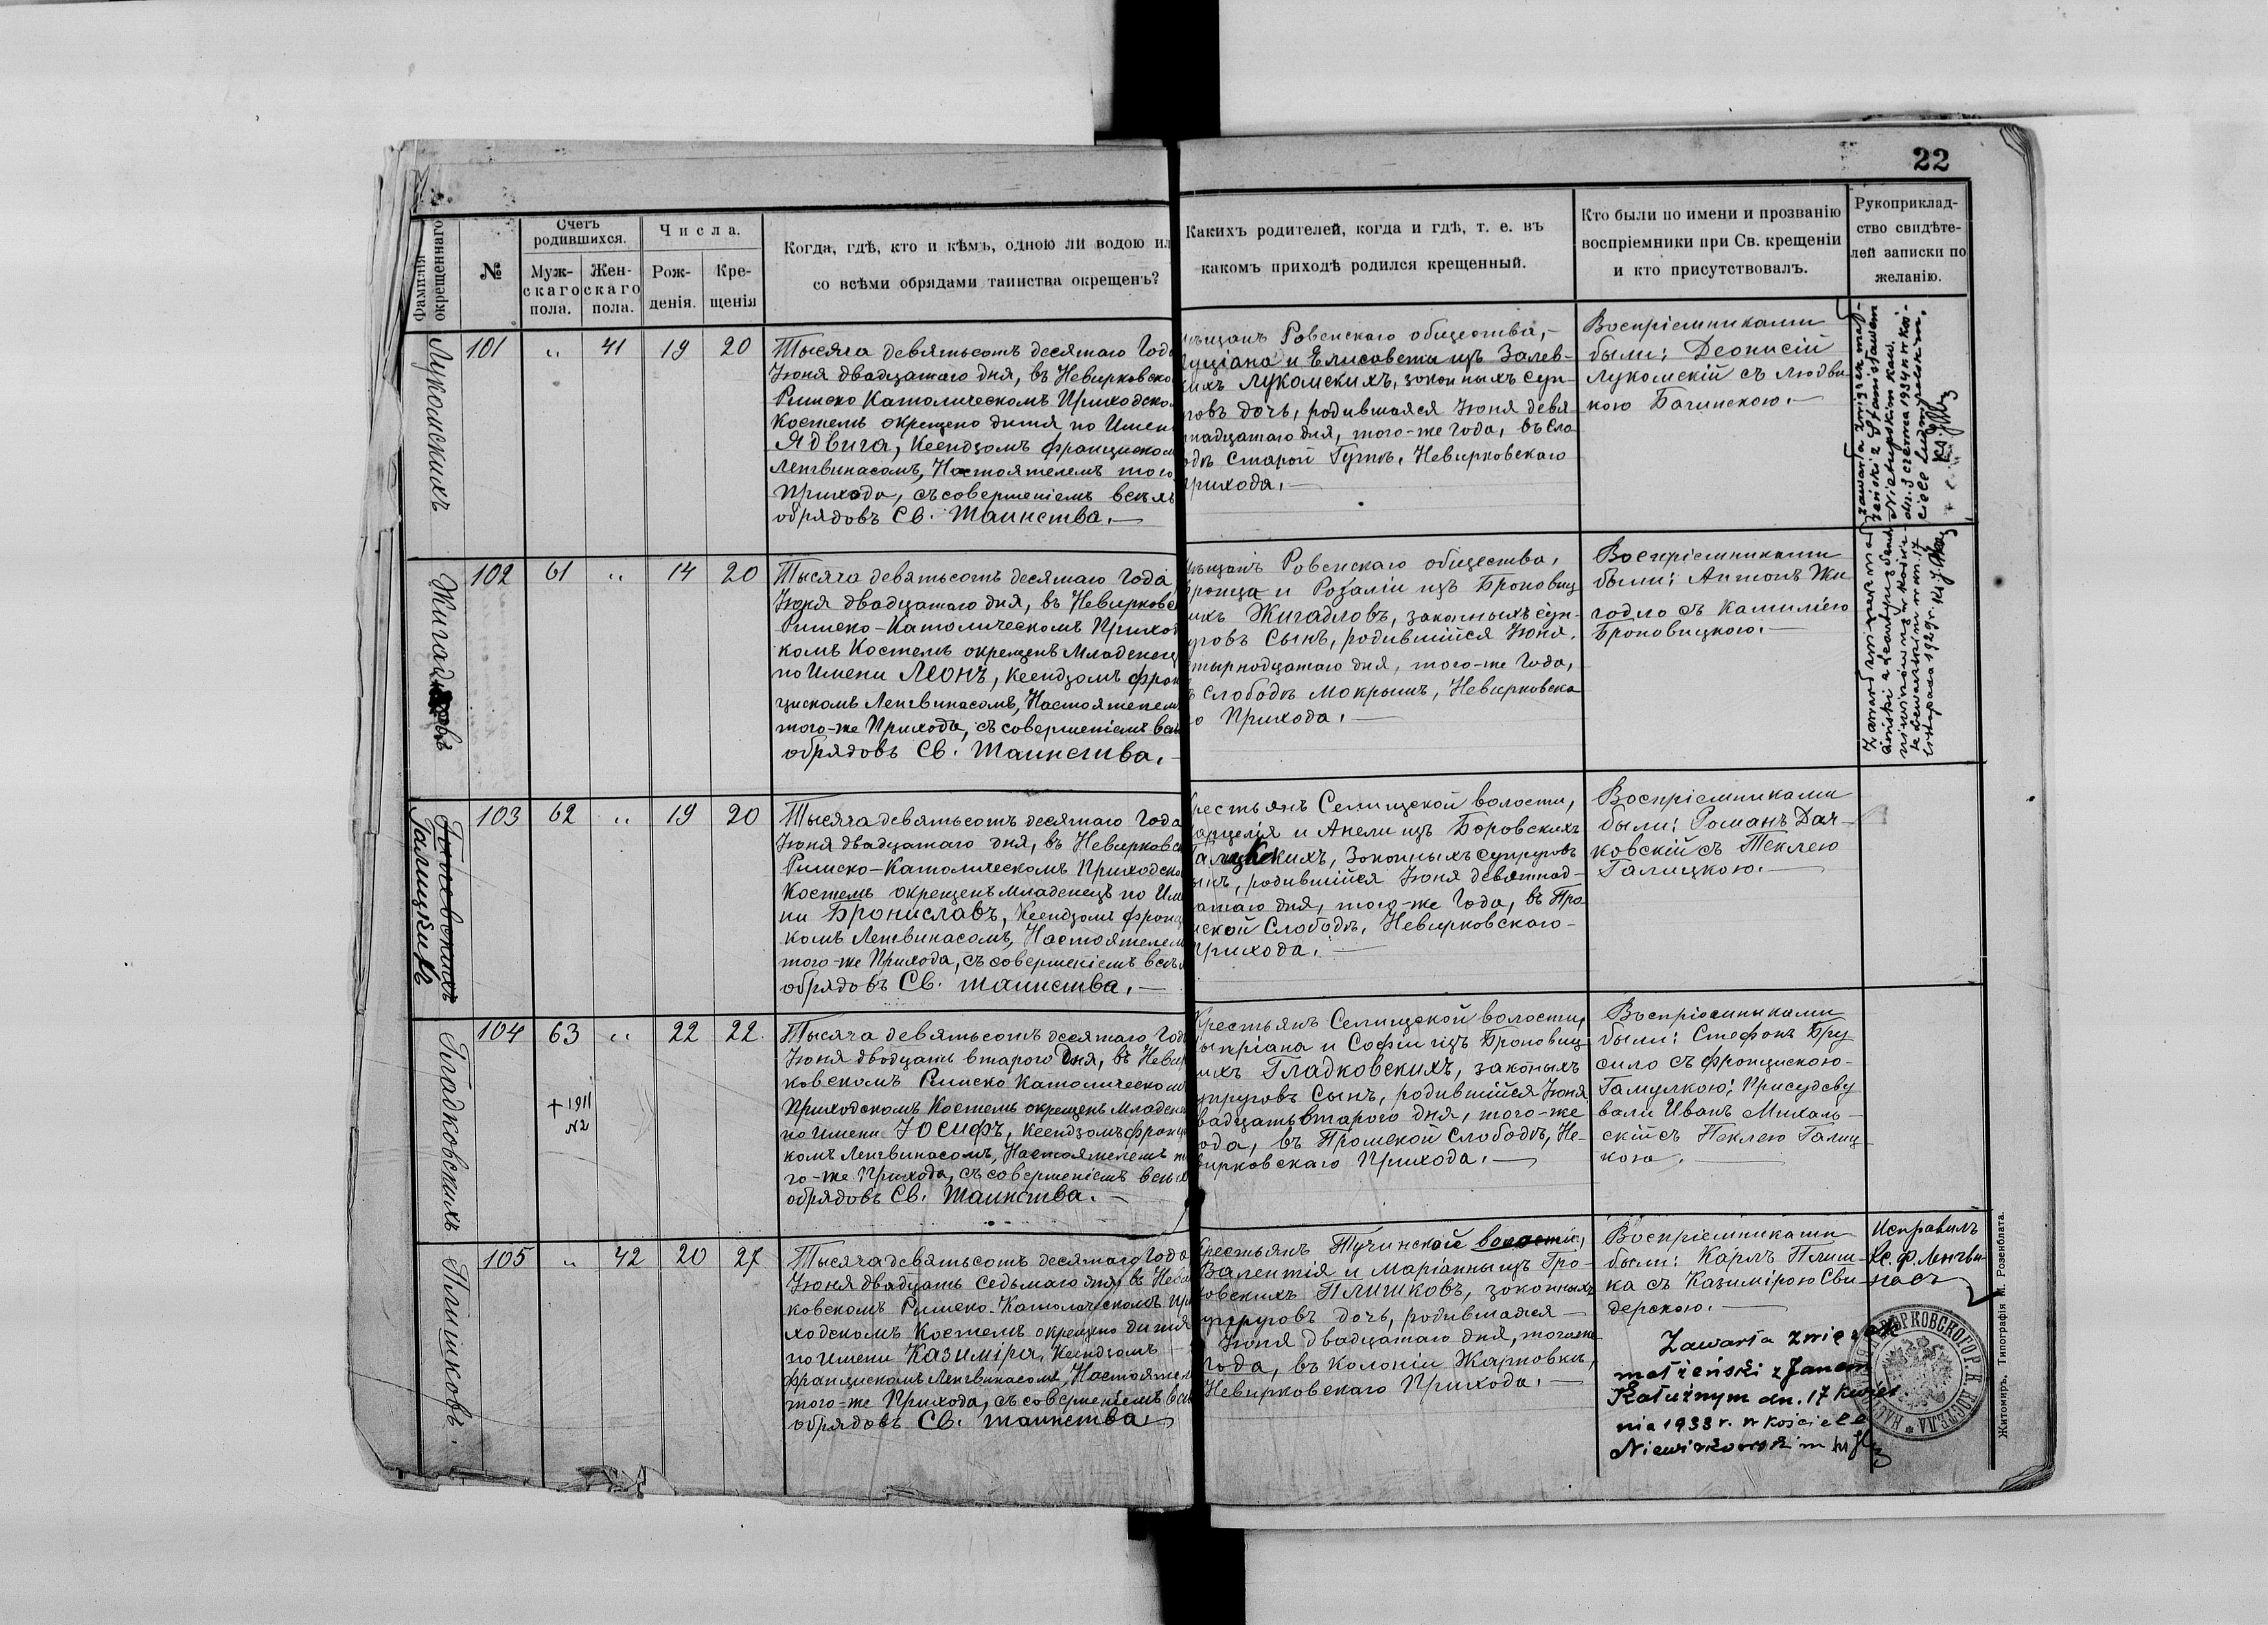 22
Фамилія окрещеннаго
№
Счетъ родившихся.
Муж-
скаго
пола.
Жен-
скаго
пола.
Числа.
Рож-
денія.
Кре-
щенія
Когда, гдѣ, кто и кѣмъ, одною ли водою ил
со всѣми обрядами таинства окрещенъ?
Какихъ родителей, когда и гдѣ, т. е. въ
какомъ приходѣ родился крещенный.
Кто были по имени и прозванію
воспріемники при Св. крещеніи
и кто присутствовалъ.
Рукоприклад-
ство свидѣте-
лей записки по
желанію.
Лукомскихъ
101 „ 41 19 20
Тысяча девятьсотъ десятаго Года
Іюня двадцатаго дня, въ Невирковско
Римско Католическомъ Приходско
Костелѣ окрещено дитя по Имени
Ядвига, Ксендзомъ Францискомъ
Ленгвинасомъ, Настоятелемъ того
Прихода, съ совершеніемъ всѣхъ
обрядовъ Св. Таинства.—
мѣщанъ Ровенскаго общества,—
Луціана и Елисаветы изъ Залев-
кихъ Лукомскихъ, законныхъ суп-
говъ дочь, родившаяся Іюня девя
надцатаго дня, того-же Года, въ Сло
одѣ Старой Гутѣ, Невирковскаго
Прихода.—
Воспріемниками
были: Деонисій
Лукомскій съ Людви
кою Бачинскою.—
Zawarła związek mał-
żeński z Stanisławem
dn. 3 czerwca 1934 r. w koś-
ciele Ludwipolskim.
Жигадловъ
102 61 „ 14 20
Тысяча девятьсотъ десятаго Года
Іюня двадцатаго дня, въ Невирковс
Римско-Католическомъ Приход
комъ Костелѣ окрещенъ Младенецъ
по Имени Леонъ, Ксендзомъ Фран
цискомъ Ленгвинасомъ, Настоятелемъ
того-же Прихода, съ совершеніемъ всѣ
обрядовъ Св. Таинства.—
мѣщанъ Ровенскаго общества,
и Розаліи изъ Броновиц
ихъ Жигадловъ, законныхъ суп-
уговъ Сынъ, родившійся Іюня
тырнадцатаго дня, того-же Года,
ъ Слободѣ Мокрыщѣ, Невирковска
о Прихода.—
Воспріемниками
были: Антонъ Жи
гадло съ Камиліею
Броновицкою.—
listopada 1929 r.
Галицкихъ
103 62 „ 19 20
Тысяча девятьсотъ десятаго Года
Іюня двадцатаго дня, въ Невирковс
Римско-Католическомъ Приходско
Костелѣ окрещенъ Младенецъ по Име
ни Брониславъ, Ксендзомъ Франц
комъ Ленгвинасомъ, Настоятелемъ
того-же Прихода, съ совершеніемъ всѣх
обрядовъ Св. Таинства.—
рестьянъ Селищской волости,
и Анели изъ Боровскихъ
Галицкихъ, Законныхъ супруговъ
ынъ, родившійся Іюня девятнад-
атаго дня, того-же Года, въ Про
ской Слободѣ, Невирковскаго-
Прихода.—
Воспріемниками
были: Романъ Дач-
ковскій съ Теклею
Галицкою.—
Гладковскихъ
104 63 „ 22 22.
+ 1911
№2
Тысяча девятьсотъ десятаго Года
Іюня двадцать втараго Дня, въ Невир
ковскомъ Римско Католическомъ
Приходскомъ Костелѣ окрещенъ Младен
по Имени Іосифъ, Ксендзомъ Франц
комъ Ленгвинасомъ, Настоятелемъ то
го-же Прихода, съ совершеніемъ всѣх
обрядовъ Св. Таинства.—
Крестьянъ Селищской волости,
ыпріана и Софіи изъ Броновиц
ихъ Гладковскихъ, законыхъ
упруговъ Сынъ, родившійся Іюня
вадцать втараго дня, того-же
ода, въ Промской Слободѣ, Не-
вирковскаго Прихода.—
Воспріемниками
были: Стефанъ Бру
сило съ Францискою-
Гамулкою; Присудсву
вали Иванъ Михаль-
скій съ Теклею Галиц-
кою.—
Плишковъ.
105 „ 42 20 27
Тысяча девятьсотъ десятаго Года
Іюня двадцать седьмаго дня, въ Невир
ковскомъ Римско-Католическомъ При
ходскомъ Костелѣ окрещено дитя
по Имени Казиміра, Ксендзомъ —
Францискомъ Ленгвинасомъ, Настоятелем
того-же Прихода, съ совершеніемъ всѣх
обрядовъ Св. Таинства.—
Крестьянъ Тучинской волости,
Валентія и Маріанны изъ Гро-
овскихъ Плишковъ, законныхъ
упруговъ дочь, родившаяся —
Іюня двадцатаго дня, тогоже
Года, въ Колоніи Жарновкѣ,
Невирковскаго Прихода.—
Воспріемниками
были: Карлъ Плиш-
ка съ Казимірою Сви-
дерскою.—
Исправилъ
Кс. Ф. Лингви-
насъ
Zawarła związek
małżeński z Janem
Kałużnym dn. 17 kwiet
nia 1933 r. w kościele
Niewirkowskim
Житомиръ, Типографія М. Розенблата.